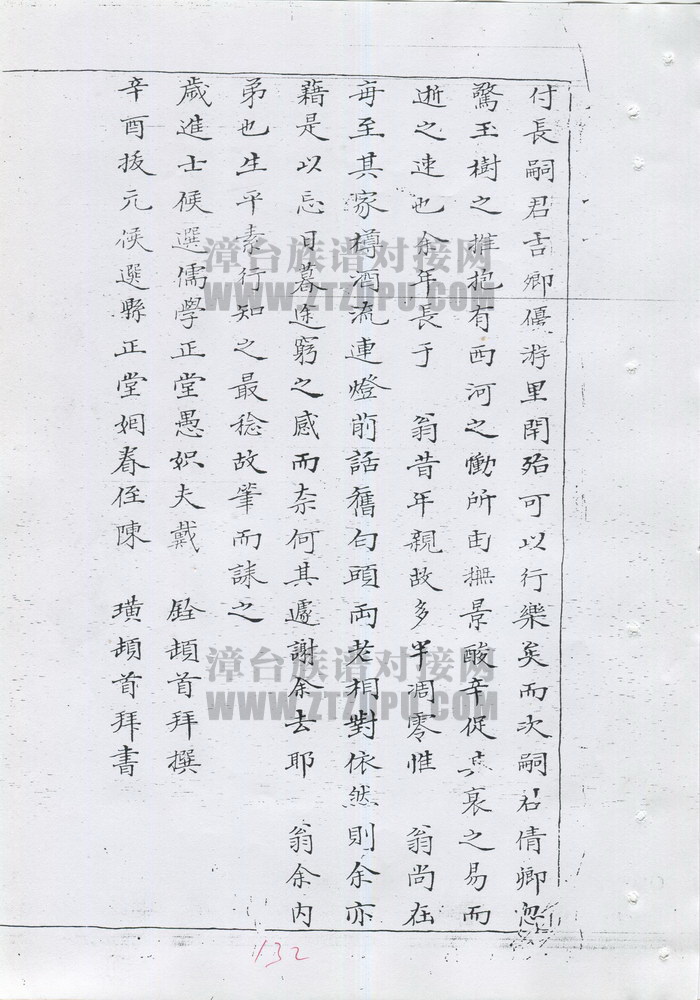 付長嗣君吉卿優游里閈殆可以行樂矣而次嗣君倩卿忽
驚玉樹之摧抱有西河之慟所由撫景酸辛促其衰之易而
逝之速也余年長于 翁昔年親故多半凋零惟 翁尚在
每至其家樽酒流連燈前話舊白頭兩老相對依然則余亦
藉是以忘日暮途窮之感而奈何其遽謝余去耶 翁余內
弟也生平素行知之最稔故筆而誄之
歲進士候選儒學正堂愚姻夫戴 銓頓首拜撰
辛酉拔元候選縣正堂姻眷侄陳 璜頓首拜書
漳台族谱对接网
WWW.ZTZUPU.COM
漳台族谱对接网
WWW.ZTZUPU.COM
132